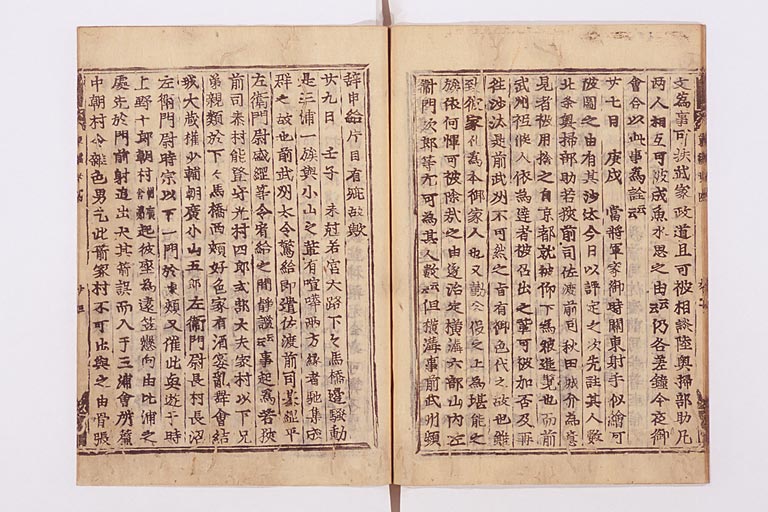 文為事可扶武家政道且可被相談陸奥掃部助凡
両人相互可被成魚水思之由云云仍各差鐘今夜御
會合以此事為詮云云
廿七日 庚戌 當將軍家御時關東射手似繪可
被圖之由有其沙汰今日以評定之次先註其人數
北条奥掃部助若狹前司佐渡前司秋田城介為意
見者被用捨之自京都就被仰下為被進覽也而前
武州祗候人依為達者被召出之輩可被加否及再
往沙汰是前武州不可然之旨有御色代之故也雖
列家礼為本御家人也又勤公役之上為堪能之
族依何憚可被除哉之由遂治定横溝六郎山内左
衞門次郎等尤可為其人數云云但横溝事前武州頗
辞申給片目有疵故歟
廿九日 壬子 未尅若宮大路下之馬橋邊騒動
是三浦一族與小山之輩有喧嘩兩方縁者馳集成
群之故也前武州太令驚給即遣佐渡前司基綱平
左衞門尉盛綱等令宥給之間靜謐云云事起為若狹
前司泰村能登守光村四郎式部大夫家村以下兄
弟親類於下之馬橋西頬好色家有酒宴亂舞會結
城大蔵權少輔朝廣小山五郎左衞門尉長村長沼
左衞門尉時宗以下一門於東頬又催此與遊于時
上野十郎朝村起彼座為遠笠懸向由比浦之
處先於門前射追出犬其箭誤而入于三浦會所簾
中朝村令雜色男乞此箭家村不可出與之由骨張